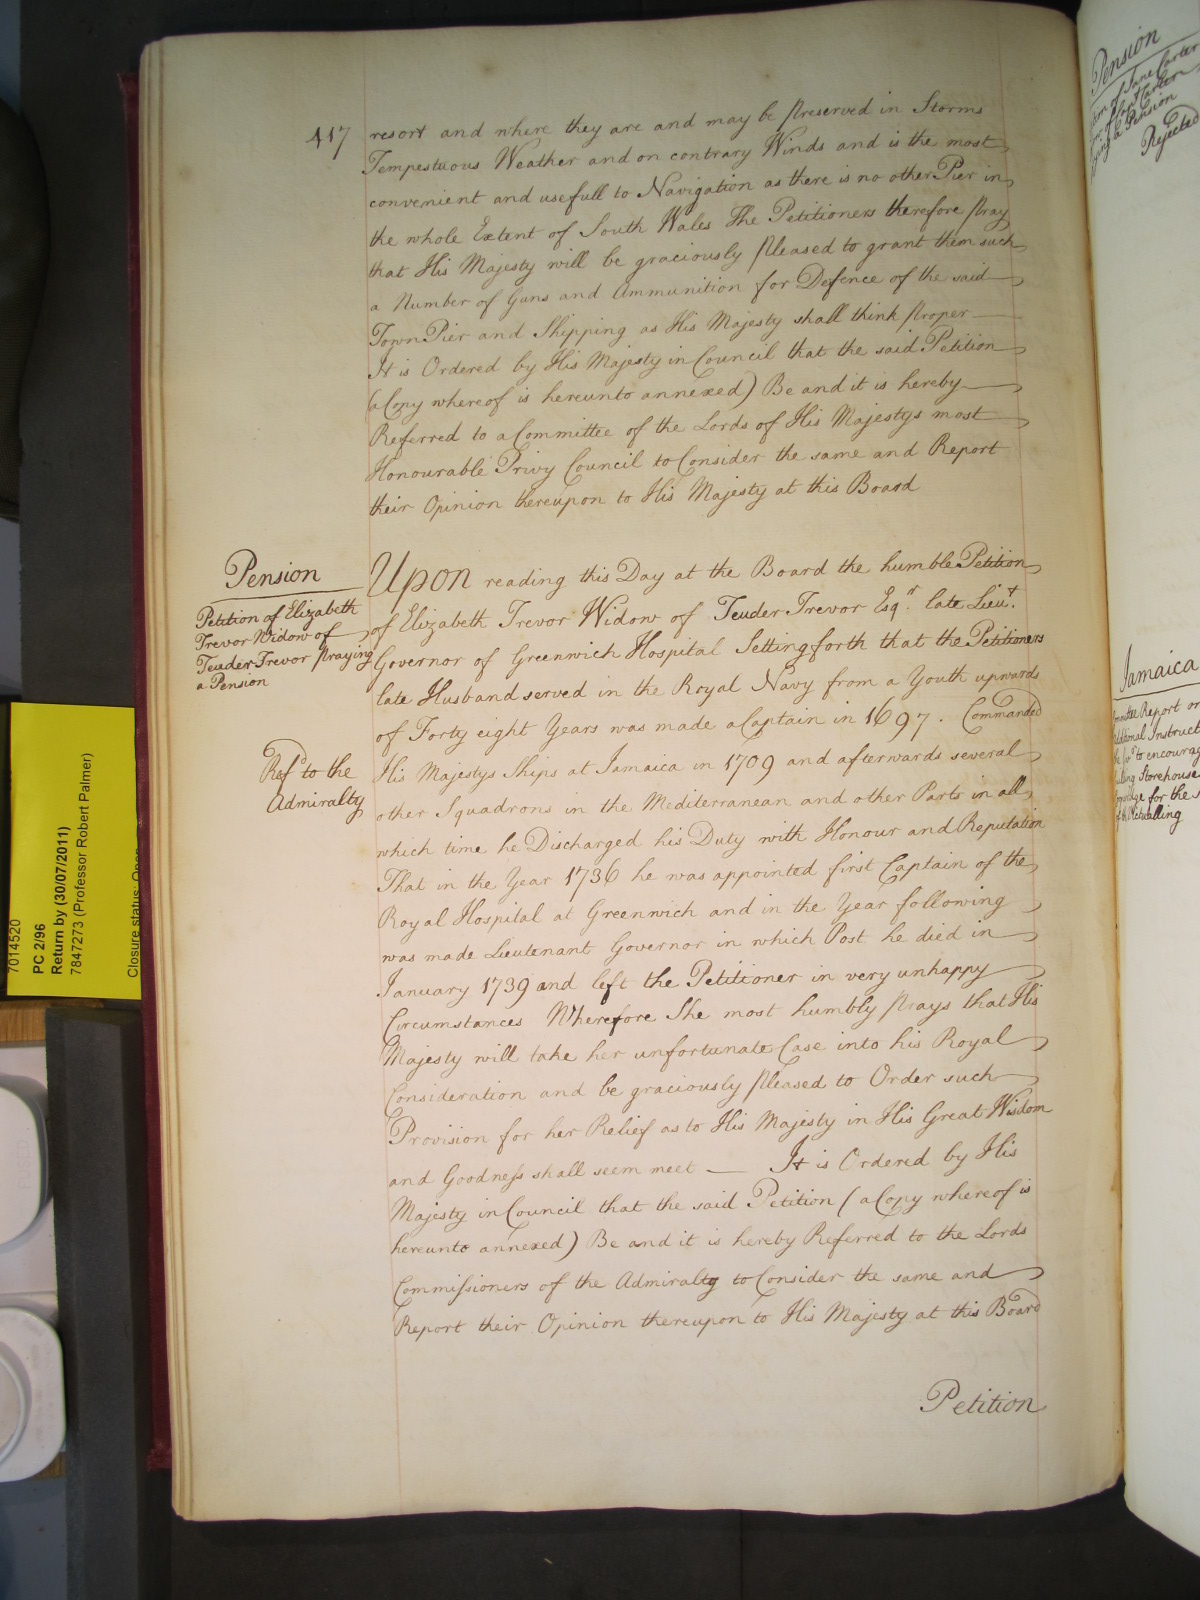 417
resort and where they are and may be preserved in Storms
Tempestuous Weather and on contrary Winds and is the most
convenient and usefull to Navigation as there is no other Pier in
the whole Extent of South Wales The Petitioners therefore pray
that His Majesty will be graciously pleased to grant them such
a Number of Guns and Ammunition for Defence of the said
Town Pier and Shipping as His Majesty shall think proper
It is Ordered by His Majesty in Council that the said Petition
(a Copy whereof is hereunto annexed) Be and it is hereby
Referred to a Committee of the Lords of His Majestys most
Honourable Privy Council to Consider the same and Report
their Opinion thereupon to His Majesty at this Board
Pension
Petition of Elizabeth
Trevor Widow of
Teuder Trevor praying
a Pension
Refd to the
Admiralty
Upon reading this Day at the Board the humble Petition
of Elizabeth Trevor Widow of Teuder Trevor Esqr. late Lieut.
Governor of Greenwich Hospital Setting forth that the Petitioners
late Husband served in the Royal Navy from a Youth upwards
of Forty eight Years was made a Captain in 1697. Commanded
His Majestys Ships at Jamaica in 1709 and afterwards several
other Squadrons in the Mediterranean and other Parts in all
which time he Discharged his Duty with Honour and Reputation
That in the Year 1736 he was appointed first Captain of the
Royal Hospital at Greenwich and in the Year following
was made Lieutenant Governor in which Post he died in
January 1739 and left the Petitioner in very unhappy
Circumstances Wherefore She most humbly prays that His
Majesty will take her unfortunate Case into his Royal
Consideration and be graciously pleased to Order such
Provision for her Relief as to His Majesty in His Great Wisdom
and Goodness shall seem meet — It is Ordered by His
Majesty in Council that the said Petition (a Copy whereof is
hereunto annexed) Be and it is hereby Referred to the Lords
Commissioners of the Admiralty to Consider the same and
Report their Opinion thereupon to His Majesty at this Board
Petition
7014520
PC 2/96
Return by (30/07/2011)
7847273 (Professor Robert Palmer)
Closure status: Open
Pension
of Jane Carter
Carter
a Pension
Rejected
Jamaica
Report on
Instruct
to encourag
Storehouse
for the
Victualling